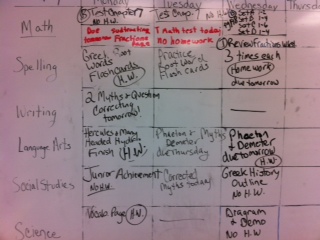 Monday Tuesday Wednesday Thursday
Math
Test Chapter 7
No H.W.
Due
tomorrow
subtracting
Fractions
page
Test Chap. 7
No H.W.
1 math test today
no homework
Set D 1-4
Review Fractions
Spelling
Greek Sort
Words
Flashcards
H.W.
Practice
Sort Word
Flash Cards
3 times each
Homework
due tomorrow
Writing
2 Myths + Question
Correcting
tomorrow
Language Arts
Hercules + Many
Headed Hydra
Finish H.W.
Phaeton + Myths
Demeter
due Thursday
Phaeton
& Demeter
due tomorrow
H.W.
Social Studies
Junior Achievement
No H.W.
Corrected
Myths today
Greek History
Outline
No H.W.
Science
Vocab. Page H.W.
Diagram
& Demo
No H.W.